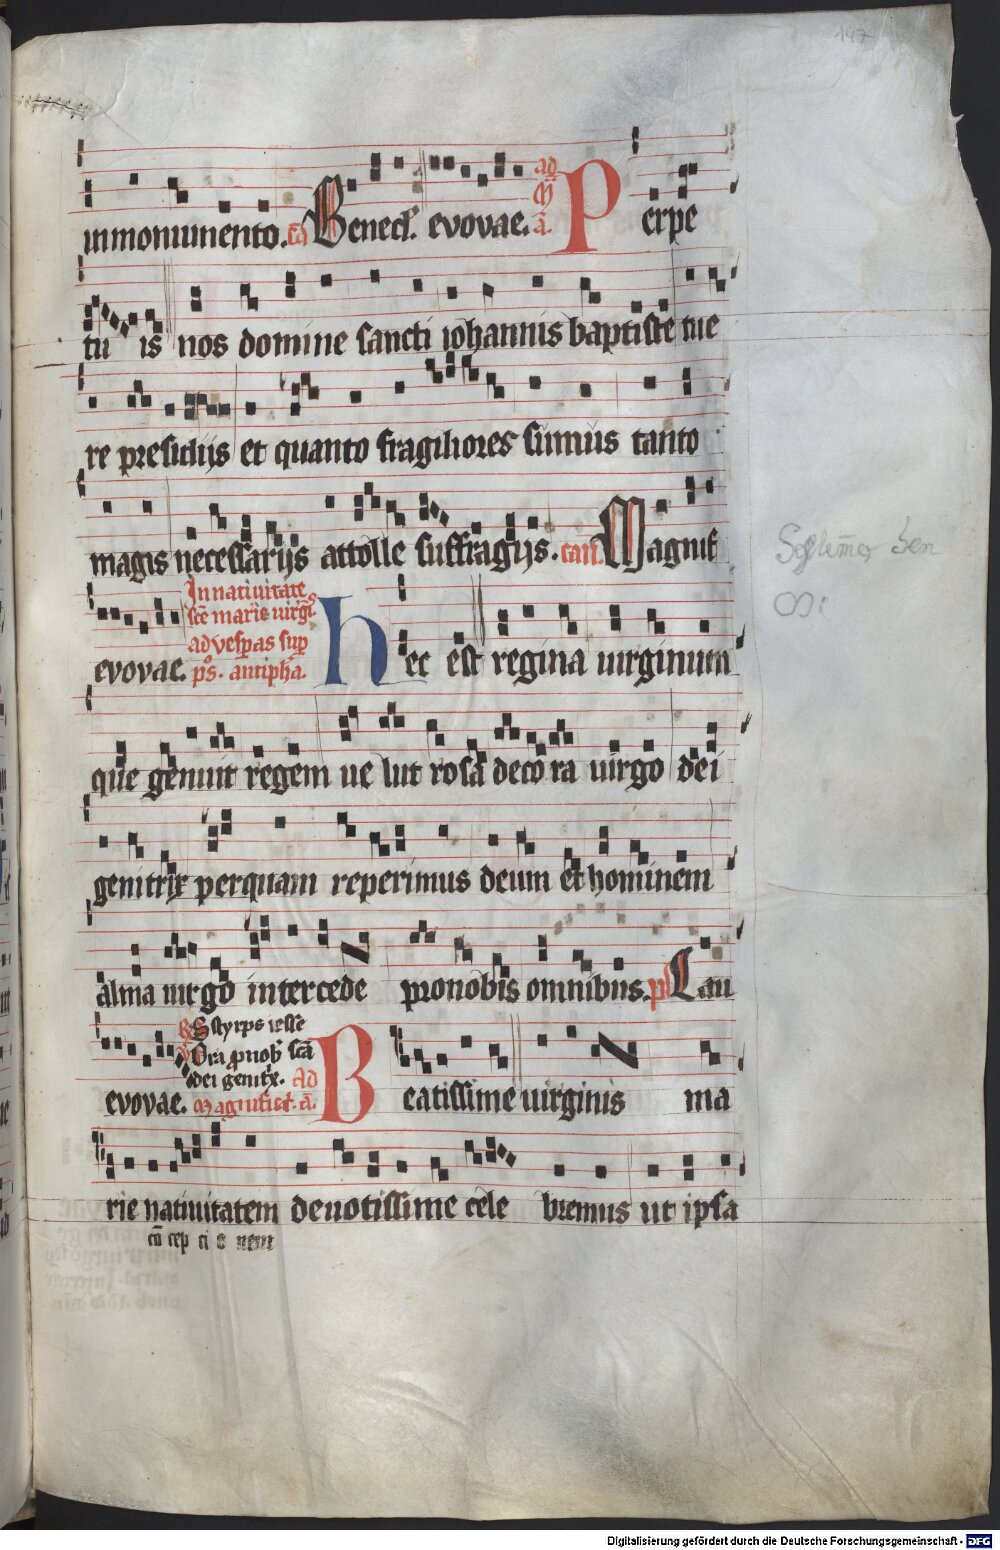 147
in monumento. ca Bened. evovae. ad M a. Perpe
tu is nos domine sancti iohannis baptiste tue
re presidiis et quanto fragiliores sumus tanto
magis necessariis attolle suffragiis. can. Magnif
evovae. In nativitate
sce marie virgis
ad vesperas sup
ps. antipha. hec est regina uirginum
que genuit regem ue lut rosa decora uirgo dei
genitrix per quam reperimus deum et hominem
alma uirgo intercede pro nobis omnibus. ps Lau
evovae. R Styrps iesse
V Ora p nob sca
dei genitx. Ad
Magnificat. a. Beatissime uirginis ma
rie natiuitatem deuotissime cele bremus ut ipsa
cū cep ti o nem
Digitalisierung gefördert durch die Deutsche Forschungsgemeinschaft - DFG